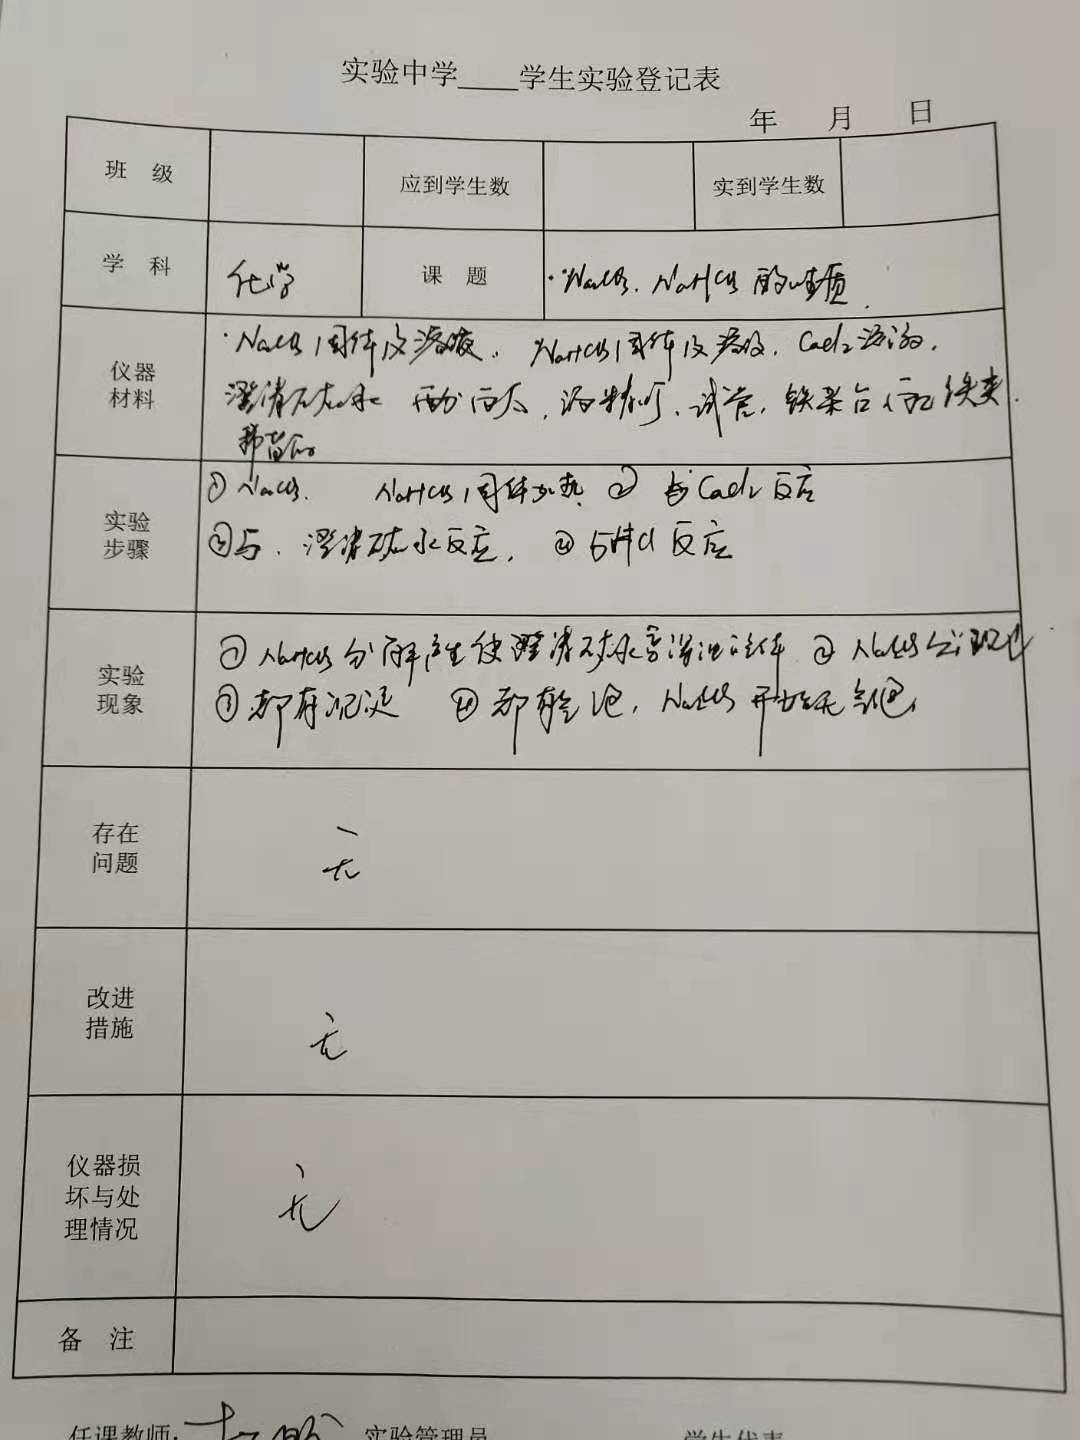 实验中学____学生实验登记表
年 月 日
班 级 应到学生数 实到学生数
学 科 化学 课 题 Na2CO3、NaHCO3的性质
仪器材料
Na2CO3固体及溶液、NaHCO3固体及溶液、CaCl2溶液、
澄清石灰水 酒精灯、试管、铁架台 铁夹
实验步骤
① Na2CO3、NaHCO3固体加热 ② 与CaCl2反应
③与澄清石灰水反应, ④ 与HCl反应
实验现象
① NaHCO3分解产生使澄清石灰水变浑浊气体 ② Na2CO3
③ 都有沉淀 ④ 都有气泡, Na2CO3开始无气泡
存在问题 无
改进措施 无
仪器损坏与处理情况 无
备 注
任课教师: 实验管理员 学生代表